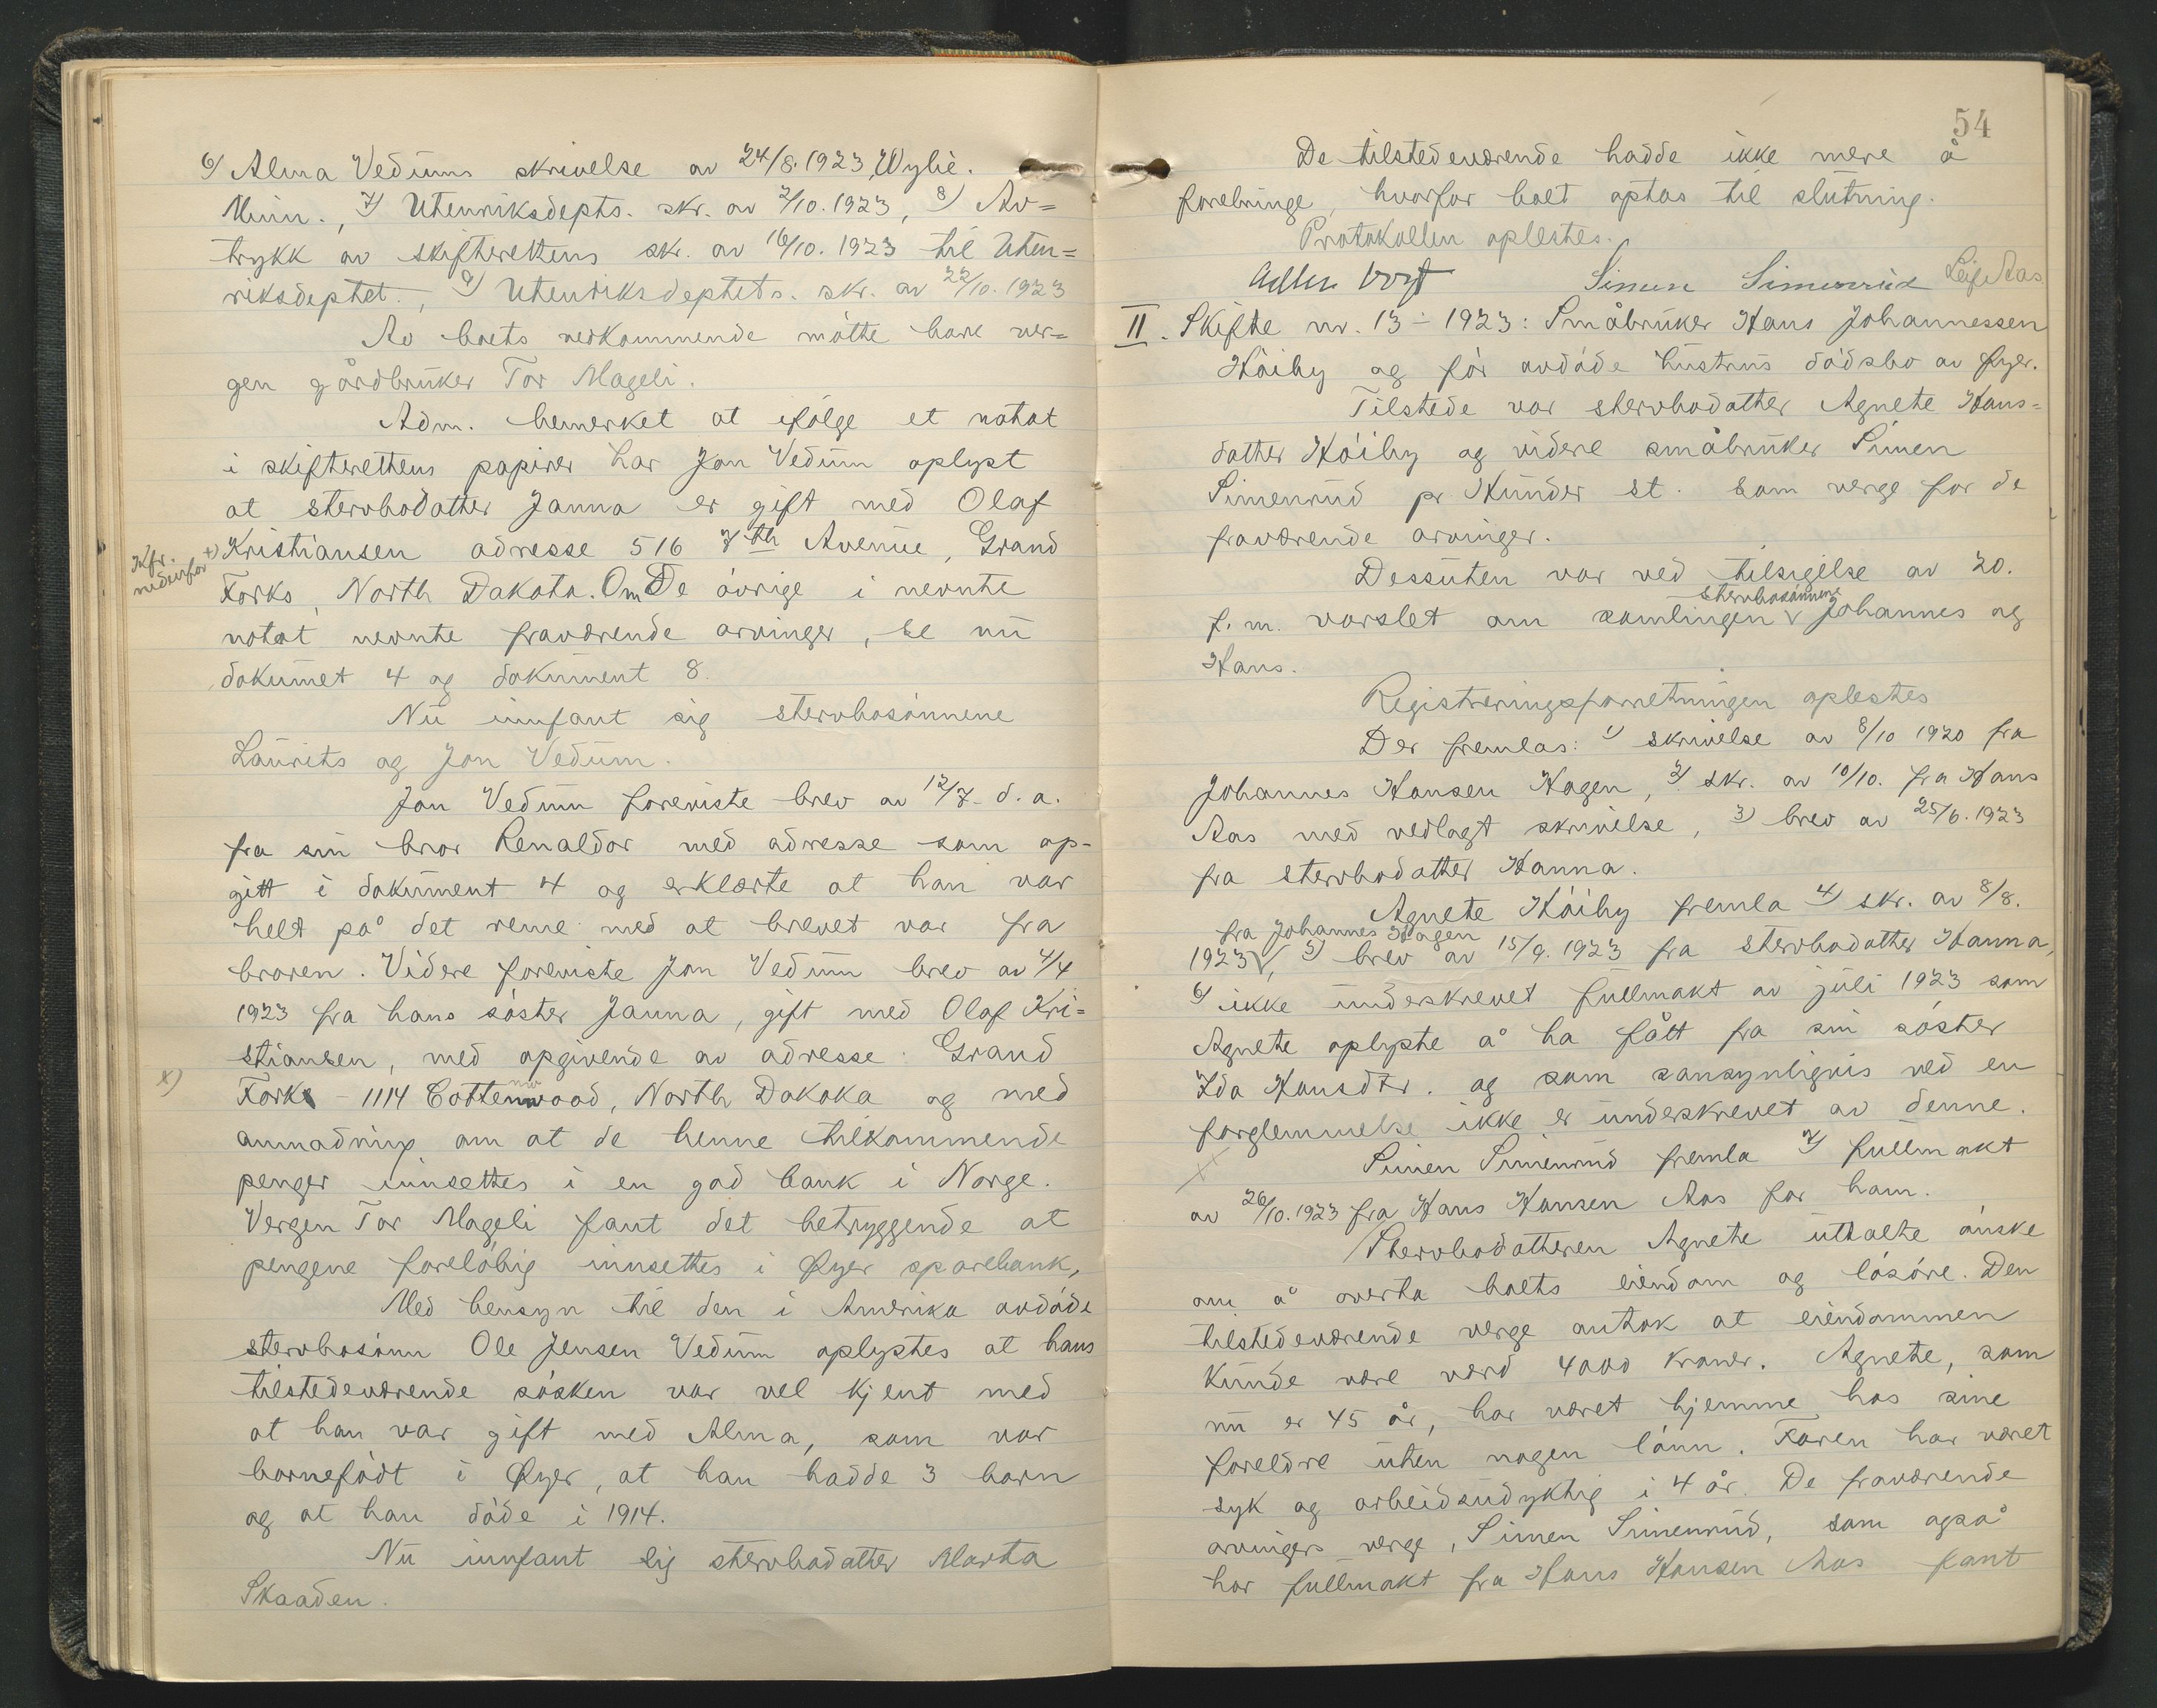 6) Alma Vedums skrivelse av 24/8.1923, Wylie.
Minn., 7) Utenriksdepts. skr. av 2/10.1923, 8) Av=
trykk av skifterettens skr. av 16/10.1923 til Uten=
riksdeptet., 9) Utenriksdeptets. skr. av 22/10.1923
Av boets vedkommende møtte bare ver=
gen gårdbruker Tor Mageli.
Adm. bemerket at ifølge et notat
i skifterettens papirer har Jon Vedum oplyst
at stervbodatter Janna er gift med Olaf
Kfr. nedenfor x) Kristiansen adresse 516 7th Avenue, Grand
Forks, North Dakota. Om De øvrige i nevnte
notat nevnte fraværende arvinger, se nu
dokumet 4 og dokument 8.
Nu innfant sig stervbosønnene
Laurits og Jon Vedum.
Jon Vedum foreviste brev av 12/7. d.a.
fra sin bror Renaldor med adresse som op-
gitt i dokument 4 og erklærte at han var
helt på det rene med at brevet var fra
broren. Videre foreviste Jon Vedum brev av 4/4
1923 fra hans søster Janna, gift med Olaf Kri=
stiansen, med opgivende av adresse: Grand
x) Forks - 1114 Cottenwood, North Dakoka og med
anmadning om at de henne tilkommende
penger innsettes i en god bank i Norge.
Vergen Tor Mageli fant det betryggende at
pengene foreløbig innsettes i Øyer sparebank,
Med hensyn til den i Amerika avdøde
stervbosønn Ole Jensen Vedum oplystes at hans
tilstedeværende søsken var vel kjent med
at han var gift med Alma, som var
barnefødt i Øyer, at han hadde 3 barn
og at han døde i 1914.
Nu innfant sig stervbodatter Marta
Skaaden.
54
De tilstedeværende hadde ikke mere å
forebringe, hvorfor boet optas til slutning.
Protokollen oplestes.
Adler Vogt Simen Simenrud Leif Aas
II. Skifte nr. 13 - 1923: Småbruker Hans Johannessen
Høiby og før avdøde hustrus dødsbo av Øyer.
Tilstede var stervbodatter Agnete Hans=
datter Høiby og videre småbruker Simen
Simenrud pr Hunder st. som verge for de
fraværende arvinger.
Dessuten var ved tilsigelse av 20.
f.m. varslet om samlingen stervbosønnene Johannes og
Hans.
Registreringsforretningen oplestes
Der fremlas: 1) skrivelse av 8/10 1920 fra
Johannes Hansen Hagen, 2) skr. av 10/10. fra Hans
Aas med vedlagt skrivelse, 3) brev av 25/6.1923
fra stervbodatter Hanna.
Agnete Høiby fremla 4) skr. av 8/8.
1923 fra Johannes Hagen, 5) brev av 15/9.1923 fra stervbodatter Hanna,
6) ikke underskrevet fullmakt av juli 1923 som
Agnete oplyste å ha fått fra sin søster
Ida Hansdtr. og som sansynligvis ved en
forglemmelse ikke er underskrevet av denne.
Simen Simenrud fremla 7) fullmakt
av 26/10.1923 fra Hans Hansen Aas for ham.
Stervbodatteren Agnete uttalte ønske
om å overta boets eiendom og løsøre. Den
tilstedeværende verge antok at eiendommen
kunde være værd 4000 kroner. Agnete, som
nu er 45 år, har været hjemme hos sine
foreldre uten nogen lønn. Faren har været
syk og arbeidsudyktig i 4 år. De fraværende
arvingers verge, Simen Simenrud, som også
har fullmakt fra Hans Hansen Aas fant